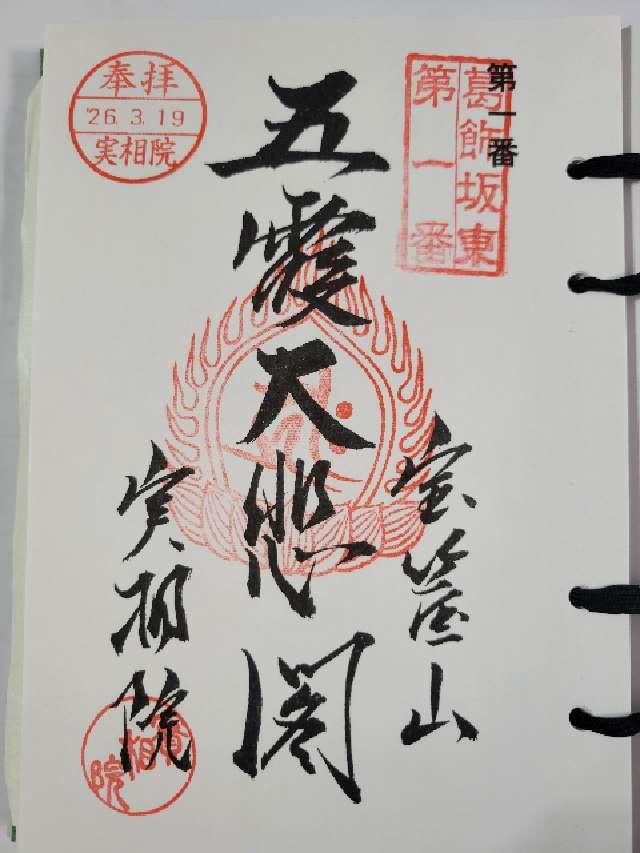 第一番
葛飾坂東
第一番
宝篋山
五霞大悲閣
実相院
奉拝
'26.3.19
実相院
實相院